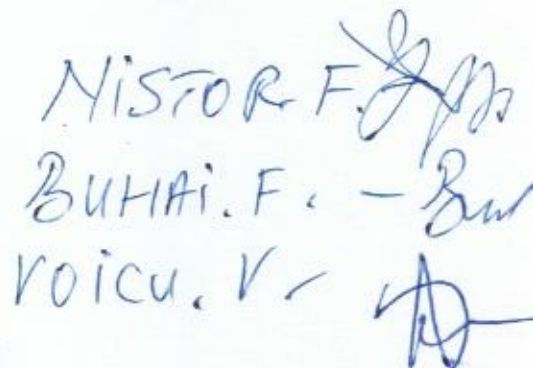 NiSTOR F.
BUHAi. F. -
VOiCU. V.